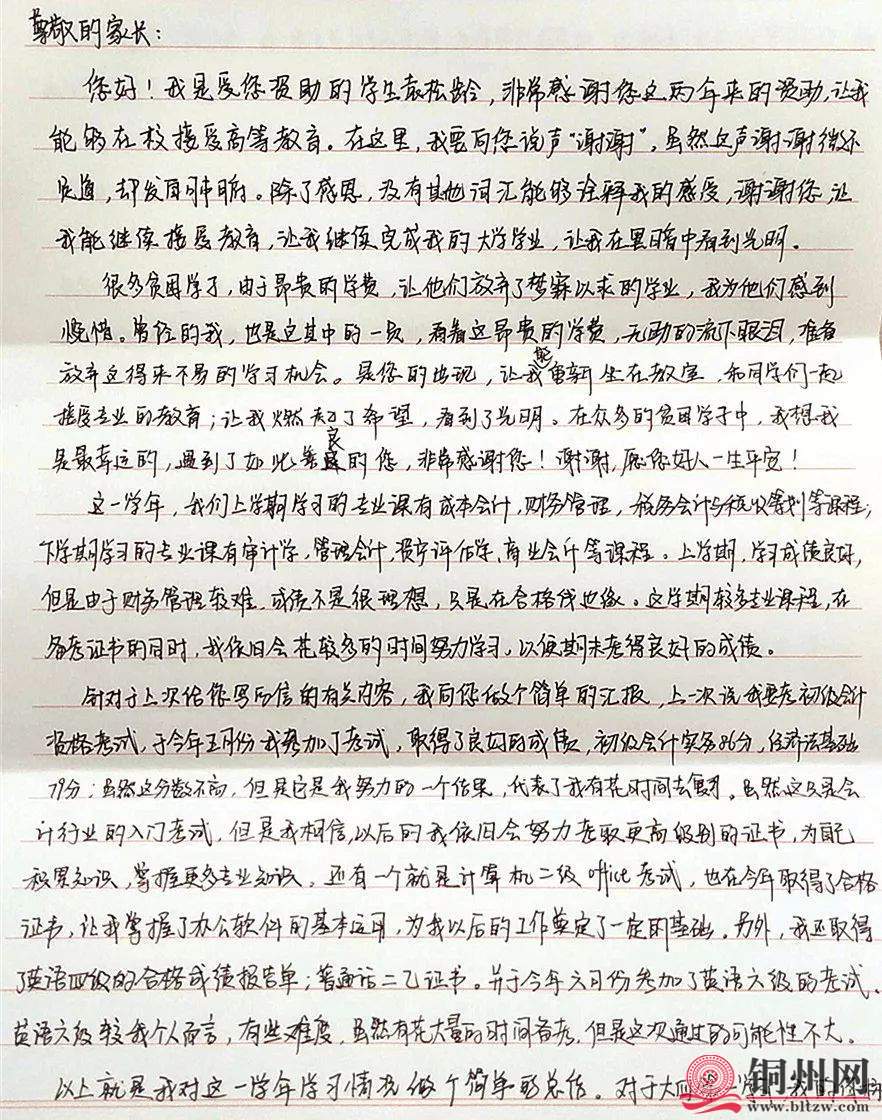 尊敬的家长:
您好!我是受您资助的学生袁松龄,非常感谢您这两年来的资助,让我
能够在校接受高等教育。在这里,我要向您说声“谢谢”,虽然这声谢谢微不
足道,却发自肺腑。除了感恩,没有其他词汇能够诠释我的感受,谢谢您,让
我能继续接受教育,让我继续完成我的大学学业,让我在黑暗中看到光明。
很多贫困学子,由于昂贵的学费,让他们放弃了梦寐以求的学业,我为他们感到
惋惜。曾经的我,也是这其中的一员,看着这昂贵的学费,无助的流下眼泪,准备
放弃这得来不易的学习机会。是您的出现,让我能重新坐在教室,和同学们一起
接受专业的教育;让我燃起了希望,看到了光明。在众多的贫困学子中,我想我
是最幸运的,遇到了如此善良的您,非常感谢您!谢谢,愿您好人一生平安!
这一学年,我们上学期学习的专业课有成本会计,财务管理,税务会计与税收筹划等课程;
下学期学习的专业课有审计学,管理会计,资产评估学、商业会计等课程。上学期,学习成绩良好,
但是由于财务管理较难,成绩不是很理想,只是在合格线边缘。这学期较多专业课程,在
备考证书的同时,我依旧会花较多的时间努力学习,以便期末考得良好的成绩。
针对于上次给您写的信的有关内容,我向您做个简单的汇报,上一次说我要考初级会计
资格考试,于今年五月份我参加了考试,取得了良好的成绩,初级会计实务86分,经济法基础
79分;虽然这分数不高,但是它是我努力的一个结果,代表了我有花时间去复习。虽然这只是会
计行业的入门考试,但是我相信,以后的我依旧会努力考取更高级别的证书,为自己
积累知识,掌握更多专业知识。还有一个就是计算机二级office考试,也在今年取得了合格
证书,让我掌握了办公软件的基本运用,为我以后的工作奠定了一定的基础。另外,我还取得
了英语四级的合格成绩报告单;普通话二乙证书。并于今年六月份参加了英语六级的考试,
英语六级较我个人而言,有些难度,虽然有花大量的时间备考,但是这次通过的可能性不大。
以上就是我对这一学年学习情况做个简单的总结。对于大四
铜州网
www.bltzw.com